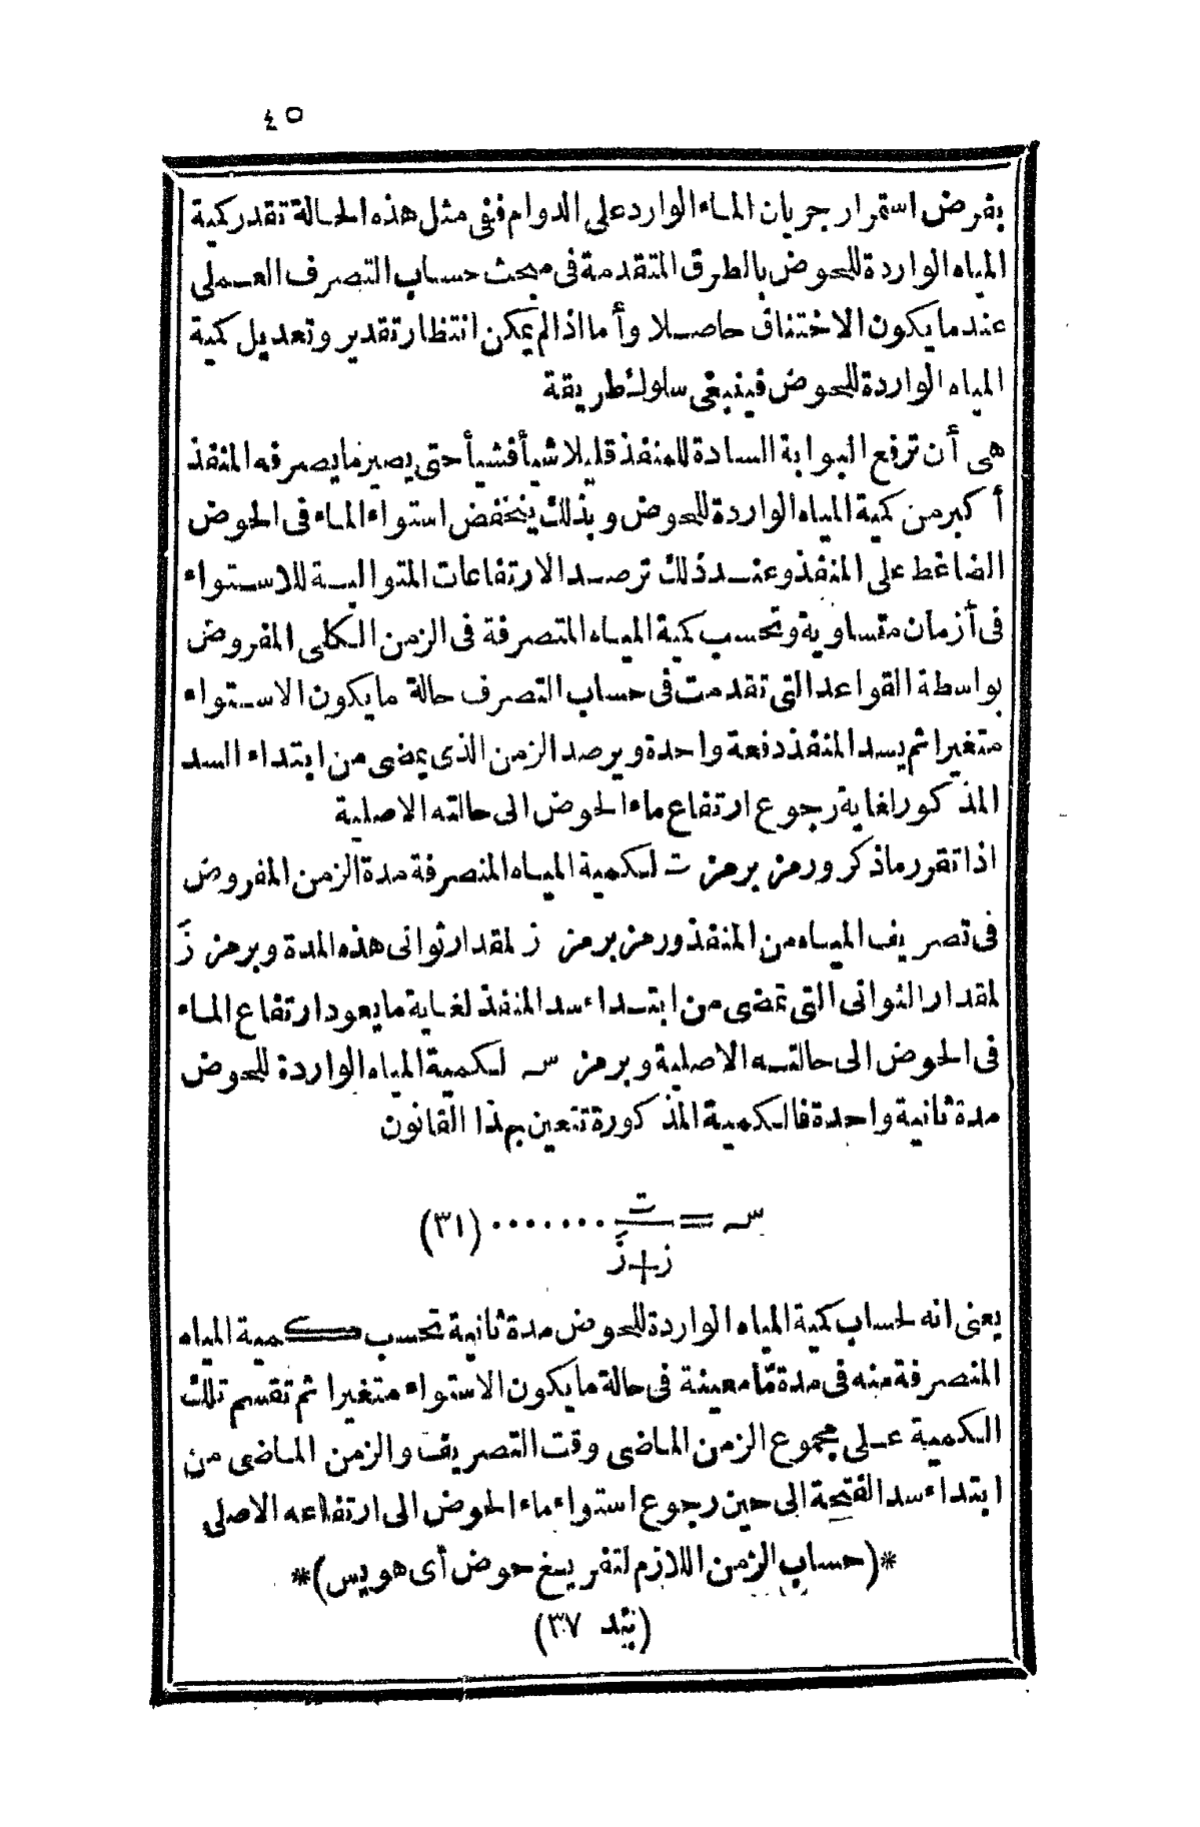 ٤٥
بفرض استمرار جريان الماء الوارد على الدوام ففى مثل هذه الحالة تقدر كمية
المياه الواردة للحوض بالطرق المتقدمة فى مبحث حساب التصرف العملى
عندما يكون الاختناق حاصلا وأما اذا لم يمكن انتظار تقدير وتعديل كمية
المياه الواردة للحوض فينبغى سلوك طريقة
هى أن ترفع البوابة السادة للمنفذ قليلا شيأ فشيأ حتى يصير ما يصرفه المنفذ
أكبر من كمية المياه الواردة للحوض وبذلك ينخفض استواء الماء فى الحوض
الضاغط على المنفذ وعند ذلك ترصد الارتفاعات المتوالية للاستواء
فى أزمان متساوية وتحسب كمية المياه المتصرفة فى الزمن الكلى المفروض
بواسطة القواعد التى تقدمت فى حساب التصرف حالة ما يكون الاستواء
متغيرا ثم يسد المنفذ دفعة واحدة ويرصد الزمن الذى يمضى من ابتداء السد
المذكور لغاية رجوع ارتفاع ماء الحوض الى حالته الاصلية
اذا تقرر ماذكر ورمز برمز ت لكمية المياه المنصرفة مدة الزمن المفروض
فى تصريف المياه من المنفذ ورمز برمز ز لمقدار ثوانى هذه المدة وبرمز زَ
لمقدار الثوانى التى تمضى من ابتداء سد المنفذ لغاية ما يعود ارتفاع الماء
فى الحوض الى حالته الاصلية وبرمز سـ لكمية المياه الواردة للحوض
مدة ثانية واحدة فالكمية المذكورة تتعين بهذا القانون
سـ = ت / (ز+زَ) ‎....... (٣١)
يعنى انه لحساب كمية المياه الواردة للحوض مدة ثانية تحسب كمية المياه
المنصرفة منه فى مدة مّا معينة فى حالة ما يكون الاستواء متغيرا ثم تقسم تلك
الكمية على مجموع الزمن الماضى وقت التصريف والزمن الماضى من
ابتداء سد الفتحة الى حين رجوع استواء ماء الحوض الى ارتفاعه الاصلى
*(حساب الزمن اللازم لتفريغ حوض أى هويس)*
(بند ٣٧)